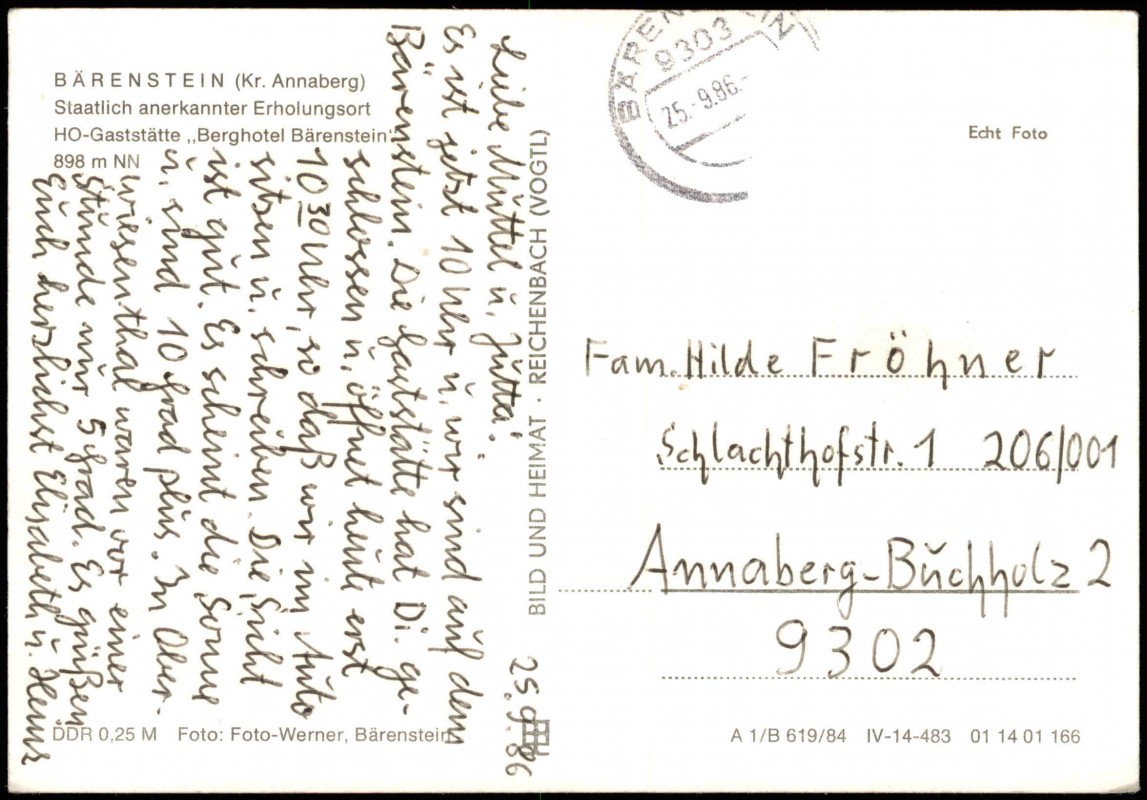 BÄRENSTEIN (Kr. Annaberg)
Staatlich anerkannter Erholungsort
HO-Gaststätte „Berghotel Bärenstein"
898 m NN
25.9.86
Liebe Muttel u. Jutta!
Es ist jetzt 10 Uhr u. wir sind auf dem
Bärenstein. Die Gaststätte hat Di. ge-
schlossen u. öffnet heute erst
10 30 Uhr, so daß wir im Auto
sitzen u. schreiben. Die Sicht
ist gut. Es scheint die Sonne
u. sind 10 Grad plus. In Ober-
wiesenthal waren vor einer
Stunde nur 5 Grad. Es grüßen
Euch herzlichst Elisabeth u. Heinz
DDR 0,25 M Foto: Foto-Werner, Bärenstein
BILD UND HEIMAT · REICHENBACH (VOGTL)
BÄRENSTEIN
9303
25.-9.86.-
Echt Foto
Fam. Hilde Fröhner
Schlachthofstr. 1 206/001
Annaberg-Buchholz 2
9302
A 1/B 619/84 IV-14-483 01 14 01 166